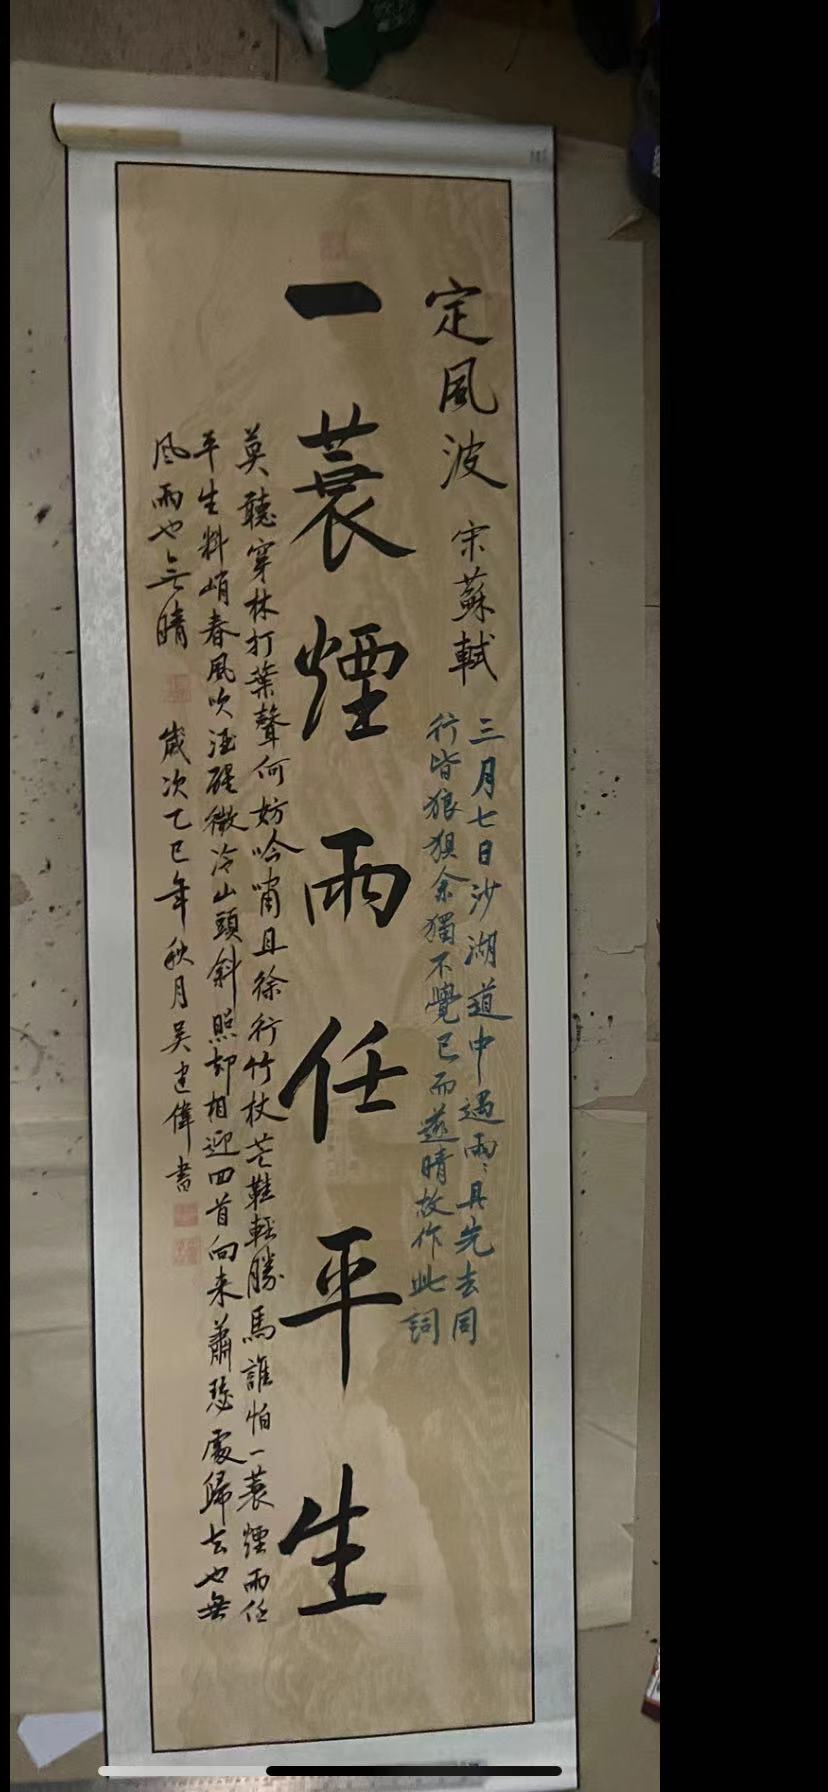 定風波 宋蘇軾
三月七日沙湖道中遇雨雨具先去同
行皆狼狽余獨不覺已而遂晴故作此詞
一蓑煙雨任平生
莫聽穿林打葉聲何妨吟嘯且徐行竹杖芒鞋輕勝馬誰怕一蓑煙雨任
平生料峭春風吹酒醒微冷山頭斜照却相迎回首向来蕭瑟處歸去也無
風雨也無晴
歲次乙巳年秋月吴建偉書